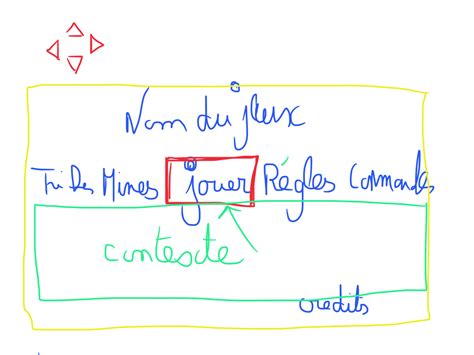 Nom du jeux
Tri Des Mines jouer Règles Commandes
contexte
credits